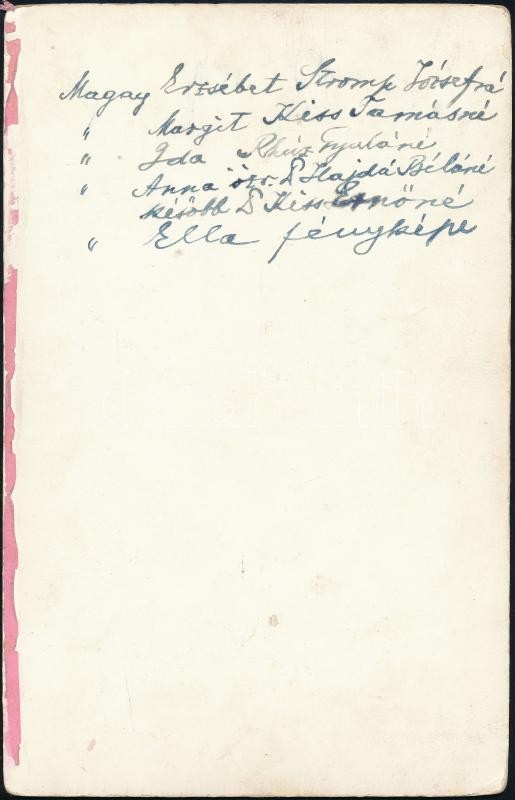 Magay Erzsébet Stromp Józsefné
„ Margit Kiss Tamásné
„ Ida Gyuláné
„ Anna özv. D Hajdá Béláné
később D Kiss Ernőné
„ Ella fényképe
darabanth